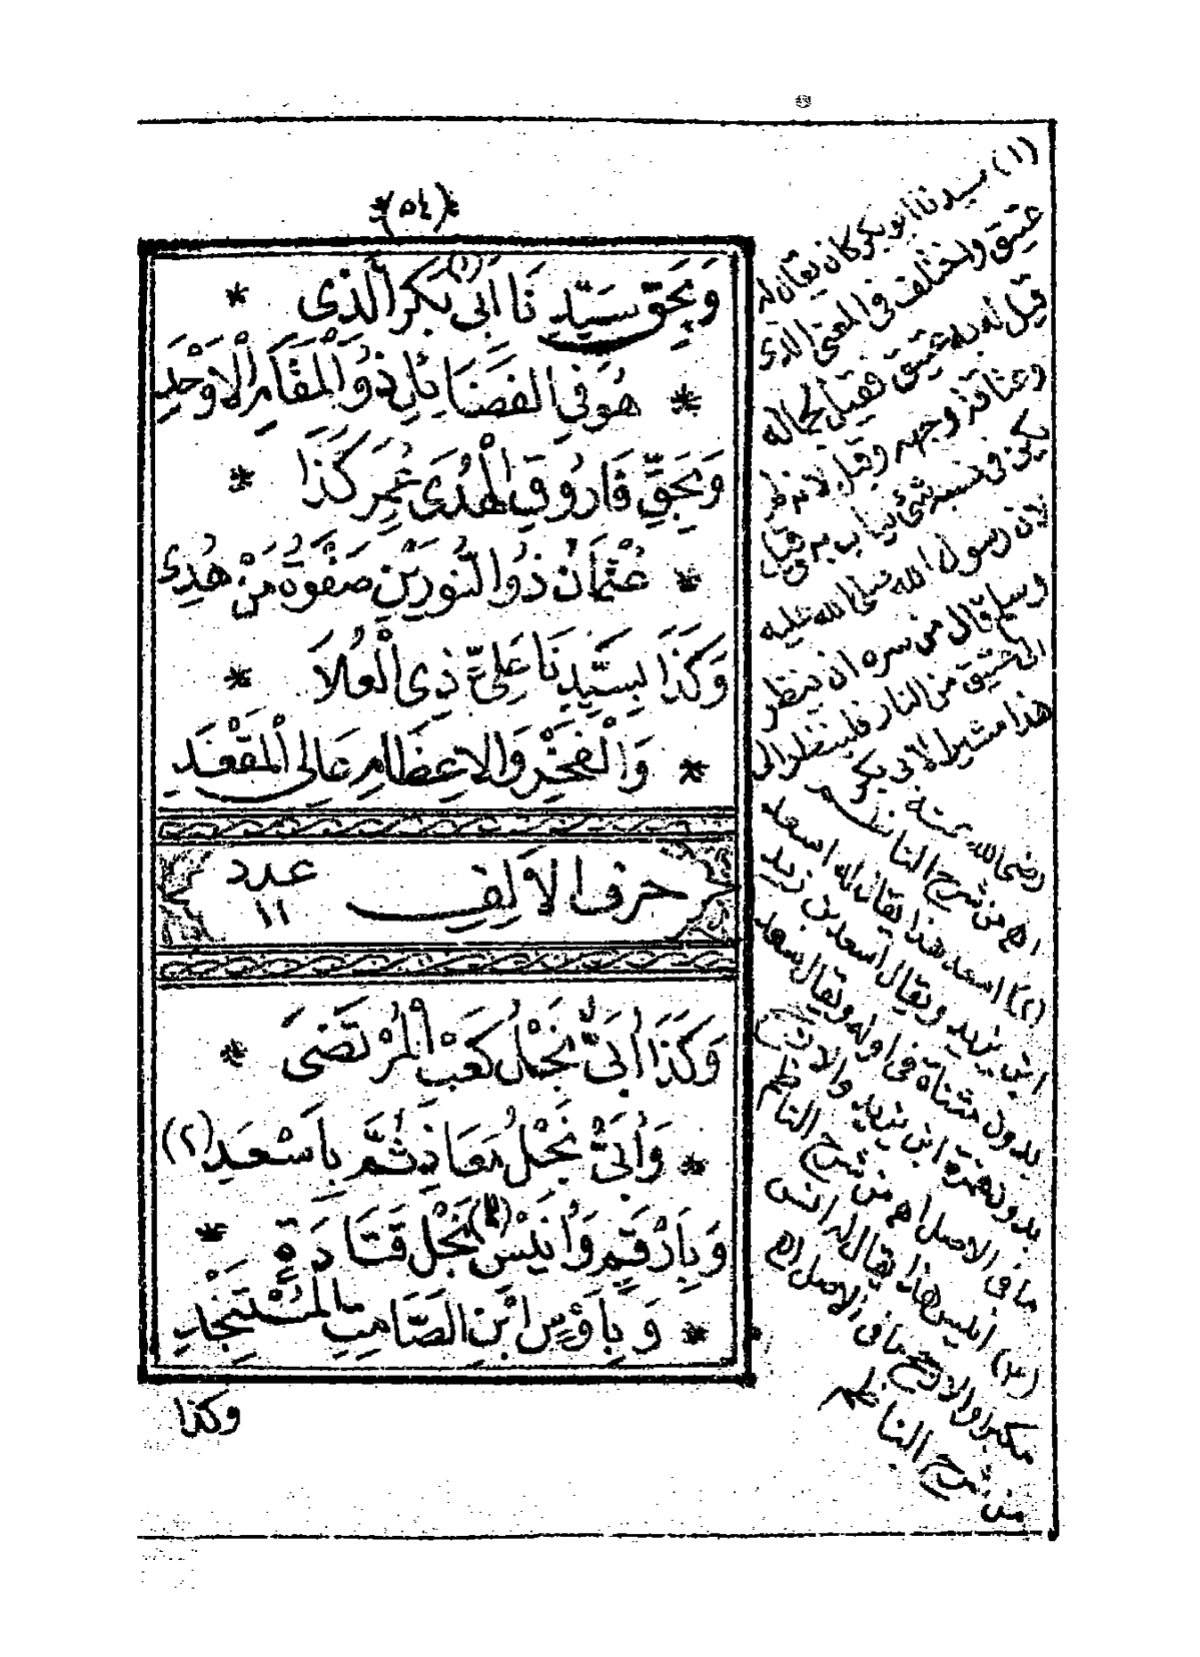 (٥٤)
وَبِحَقِّ سَيِّدِنَا أَبِى بَكْرٍ (١) الَّذِى *
* هُوَ فِى الْفَضَائِلِ ذُو الْمَقَامِ الْاَوْحَدِ
وَبِحَقِّ فَارُوقِ الْهُدَى عُمَرٍ كَذَا *
* عُثْمَانُ ذُو النُّورَيْنِ صَفْوَةُ مَنْ هُدِى
وَكَذَا بِسَيِّدِنَا عَلِىٍّ ذِى الْعُلَا *
* وَالْفَخْرِ وَالْاِعْظَامِ عَالِى الْمَقْعَدِ
حرف الاَلِف عدد ١١
وَكَذَا أُبَىُّ نَجْلُ كَعْبِ الْمُرْتَضَى *
* وَأُبَىُّ نَجْلُ مُعَاذِ ثُمَّ بِأَسْعَدِ (٢)
وَبِأَرْقَمٍ وَأُنَيْسُ (٣) نَجْلُ قَتَادَةٍ *
* وَبِأَوْسِ ابْنِ الصَّامِتِ الْمُسْتَنْجِدِ
وكذا
(١) سيدنا ابو بكر كان يقال له
عتيق واختلف فى المعنى الذى
قيل له به عتيق فقيل لجماله
وعتاقة وجهه وقيل لانه لم
يكن فى نسبه شئ يعاب به وقيل
لان رسول الله صلى الله عليه
وسلم قال من سره ان ينظر
الى عتيق من النار فلينظر الى
هذا مشيرا لابى بكر
رضى الله عنه
اه من شرح الناظم
(٢) اسعد هذا يقال له اسعد
ابن يزيد ويقال اسعد بن زيد
بدون مثناة فى اوله ويقال سعد
بدون همزة ابن يزيد والارجح
ما فى الاصل اه من شرح الناظم
(٣) انيس هذا يقال له انس
مكبرا والارجح ما فى الاصل اه
من شرح الناظم